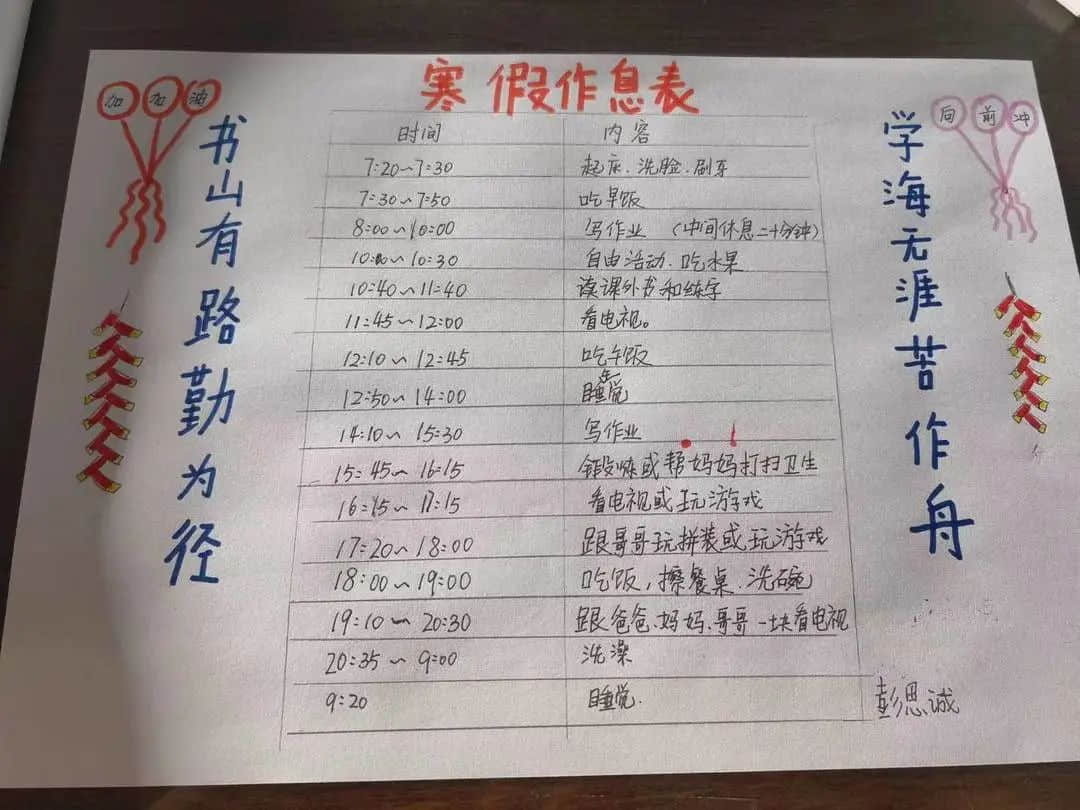 寒假作息表
加加油
向前冲
书山有路勤为径
学海无涯苦作舟
时间 内容
7:20～7:30 起床、洗脸、刷牙
7:30～7:50 吃早饭
8:00～10:00 写作业（中间休息二十分钟）
10:00～10:30 自由活动、吃水果
10:40～11:40 读课外书和练字
11:45～12:00 看电视。
12:10～12:45 吃午饭
12:50～14:00 睡午觉
14:10～15:30 写作业
15:45～16:15 锻炼或帮妈妈打扫卫生
16:15～17:15 看电视或玩游戏
17:20～18:00 跟哥哥玩拼装或玩游戏
18:00～19:00 吃饭，擦餐桌、洗碗
19:10～20:30 跟爸爸、妈妈、哥哥一块看电视
20:35～9:00 洗澡
9:20 睡觉.
彭思诚